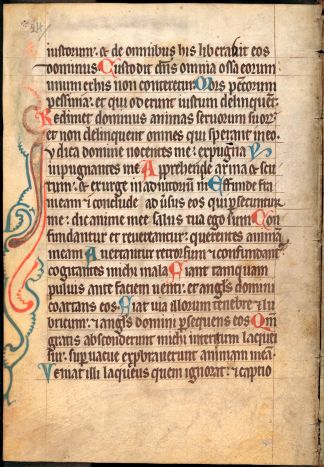 iustorum. & de omnibus his liberabit eos
dominus Custodit dn̄s omnia ossa eorum
unum ex his non conteretur. Mors pc̄torum
pessima. et qui oderunt iustum delinquēt.
Redimet dominus animas seruorum suoꝝ.
et non delinquent omnes qui sperant in eo.
Iudica domine nocentes me. expugna
inpugnantes me Apprehende arma & scu
tum. & exurge in adiutoriū m̄ Effunde fra
meam et conclude adu̓sus eos qui persecuntur
me. dic anime mee salus tua ego sum Con
fundantur et reuertantur. querentes animā
meam Auertantur retrorsum & confundant̉
cogitantes michi mala Fiant tamquam
puluis ante faciem uenti. et angl̓s domini
coartans eos. Fiat uia illorum tenebre & lu
bricum. & angl̓s domini ꝑsequens eos Qm̄
gratis absconderunt michi interitum laquei
sui. sup̱uacue exprobrauerunt animam meā.
Veniat illi laqueus quem ignorat. & captio